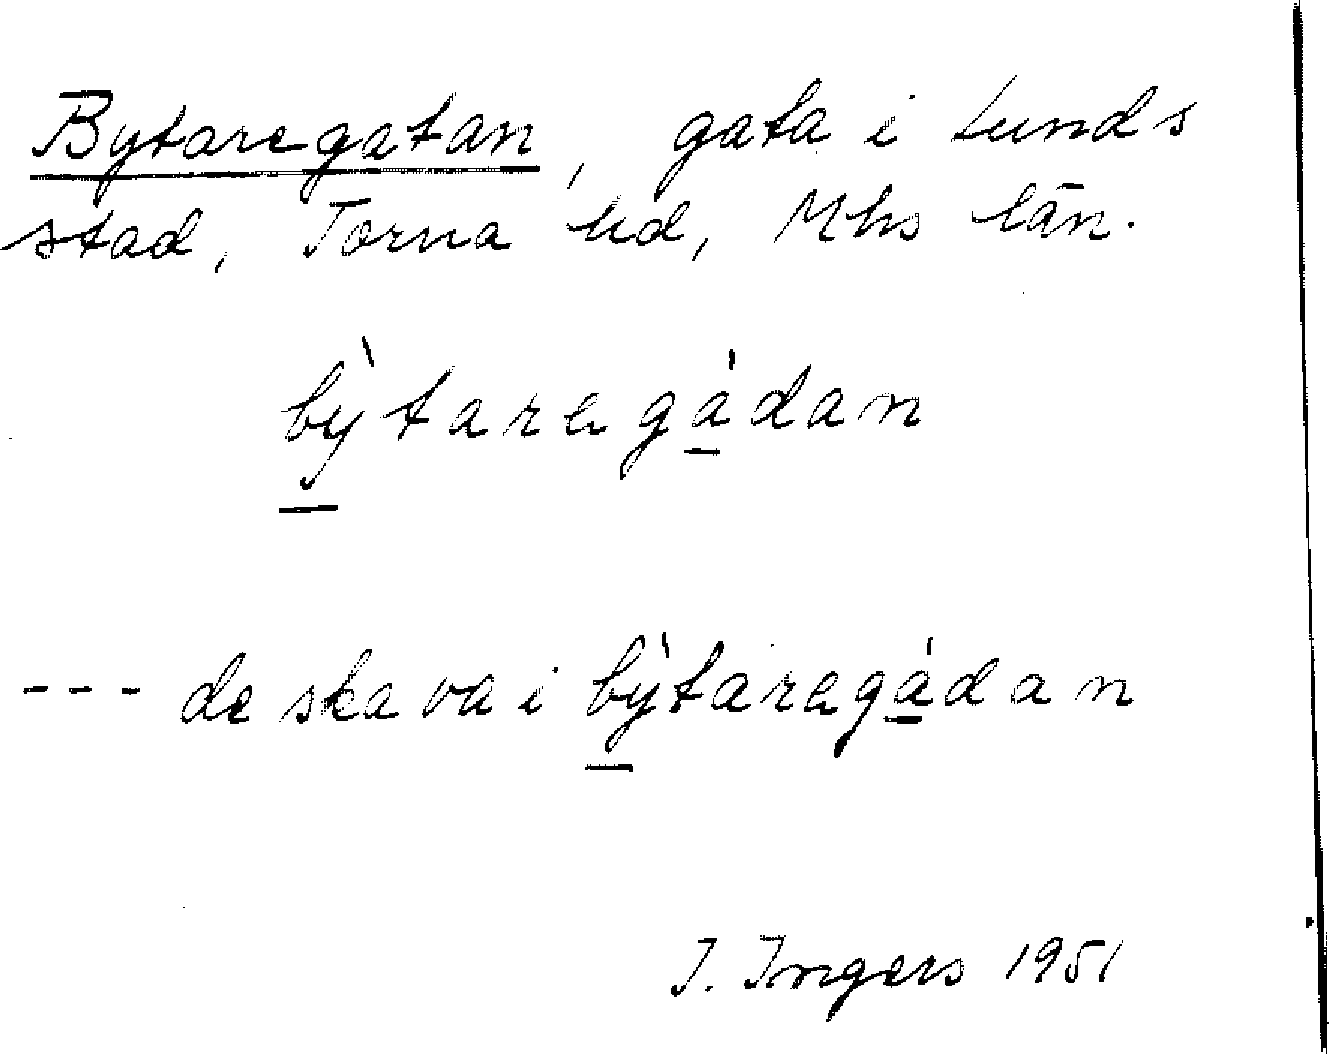 Bytaregatan, gata i Lunds
stad, Torna hd, Mhs län.
bỳtaregàdan
--- de ska va i bỳtaregàdan
I. Ingers 1951